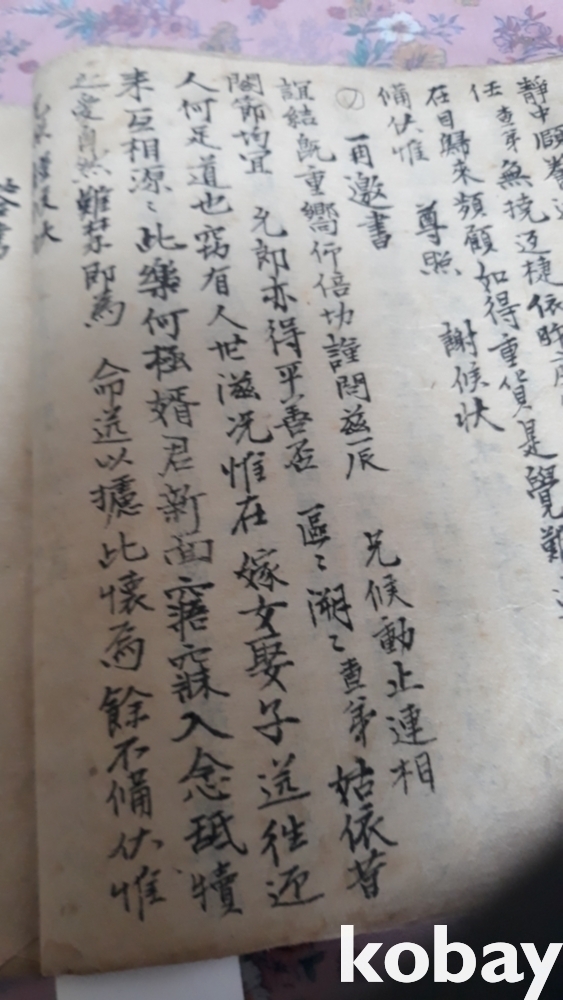 靜中
任查弟無撓迓捷依昨
在目歸來頻顧如得重貨是覺難
備伏惟 尊照 謝候狀
再邀書
誼結旣重嚮仰倍切謹問玆辰 兄候動止連相
閤節均宜 允郎亦得平善否 區〻溯〻查弟姑依昔
人何足道也竊有人世滋況惟在嫁女娶子送往迎
來互相源〻此樂何極婿君新面寤寐入念舐犢
之愛自然難禁卽爲 命送以攄此懷爲餘不備伏惟
kobay